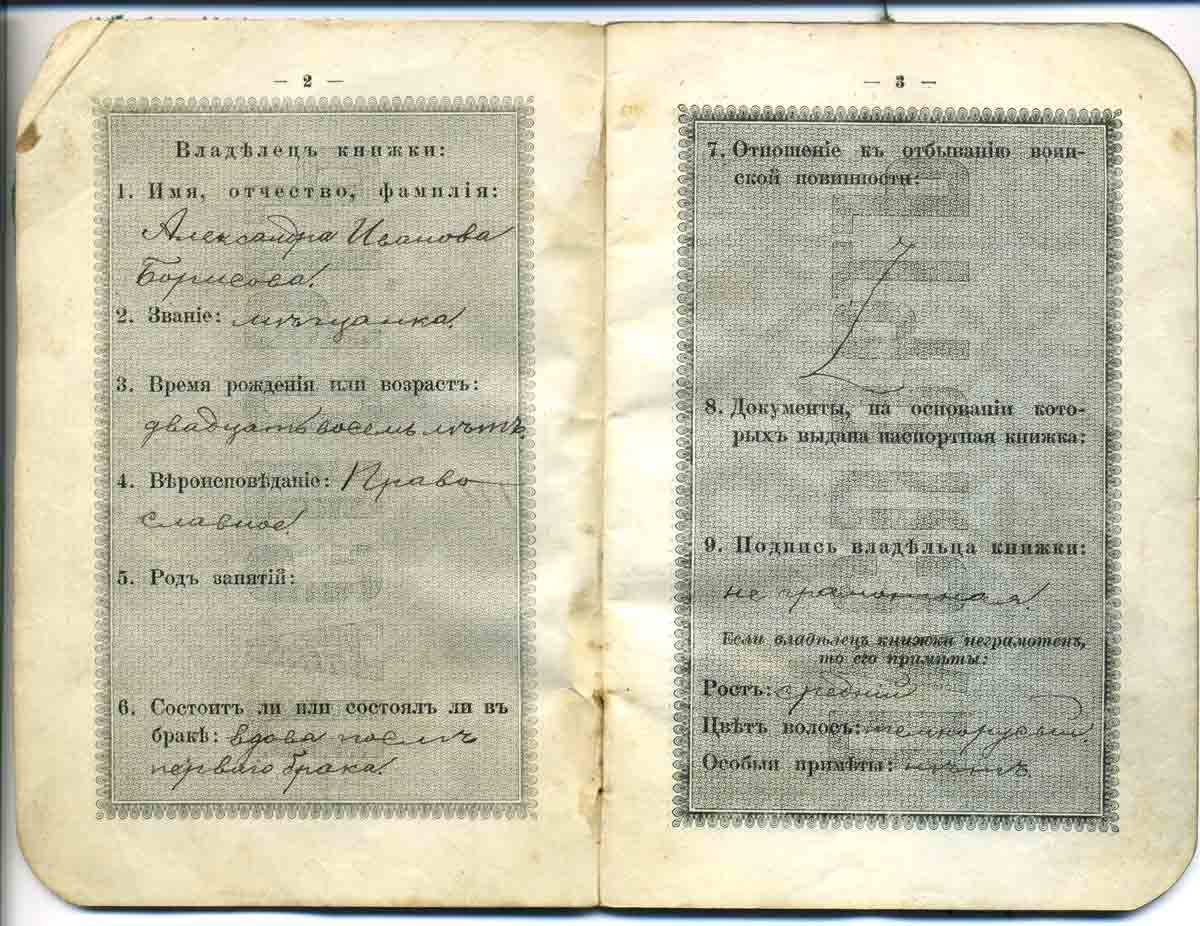 — 2 —
Владѣлецъ книжки:
1. Имя, отчество, фамилія:
Александра Иванова
Борисова.
2. Званіе: мѣщанка.
3. Время рожденія или возрастъ:
двадцать восемь лѣтъ.
4. Вѣроисповѣданіе: Право-
славное.
5. Родъ занятій:
6. Состоитъ ли или состоялъ ли въ
бракѣ: вдова послѣ
перваго брака.
— 3 —
7. Отношеніе къ отбыванію воин-
ской повинности:
8. Документы, на основаніи кото-
рыхъ выдана паспортная книжка:
9. Подпись владѣльца книжки:
не грамотная.
Если владѣлецъ книжки неграмотенъ,
то его примѣты:
Ростъ: средній
Цвѣтъ волосъ: темнорусый.
Особыя примѣты: нѣтъ.